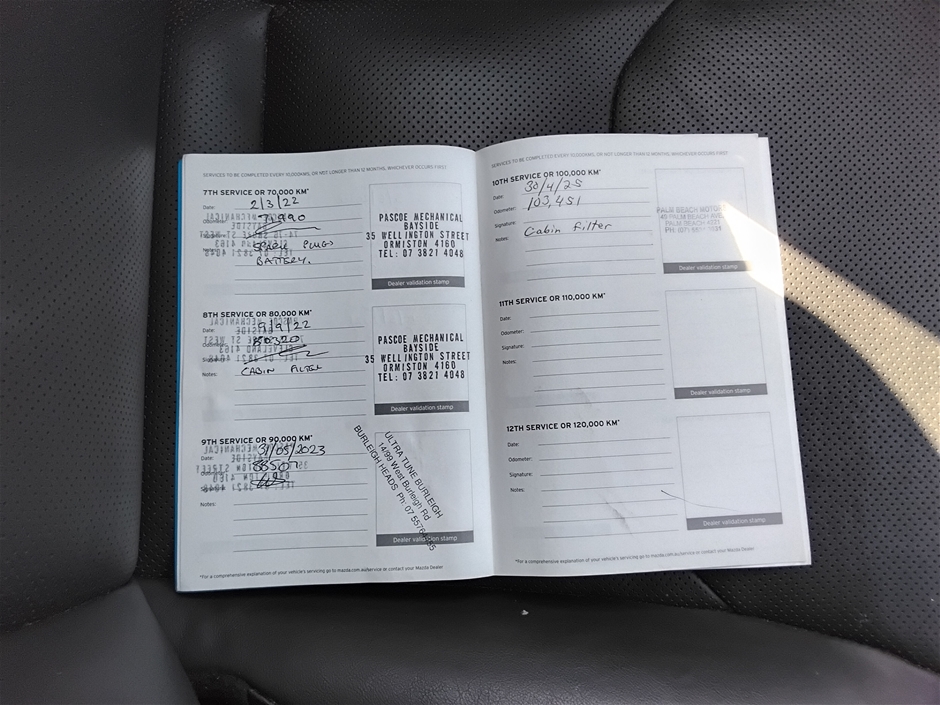 SERVICES TO BE COMPLETED EVERY 10,000KMS, OR NOT LONGER THAN 12 MONTHS, WHICHEVER OCCURS FIRST
7TH SERVICE OR 70,000 KM*
Date: 2/3/22
Odometer: 71,990
Signature:
Notes: SPARK PLUGS
BATTERY.
PASCOE MECHANICAL
BAYSIDE
35 WELLINGTON STREET
ORMISTON 4160
TEL: 07 3821 4048
Dealer validation stamp
8TH SERVICE OR 80,000 KM*
Date: 9/9/22
Odometer: 80320
Signature:
Notes: CABIN FILTER
PASCOE MECHANICAL
BAYSIDE
35 WELLINGTON STREET
ORMISTON 4160
TEL: 07 3821 4048
Dealer validation stamp
9TH SERVICE OR 90,000 KM*
Date: 31/05/2023
Odometer:
Signature:
Notes:
ULTRA TUNE BURLEIGH
14/99 West Burleigh Rd
BURLEIGH HEADS Ph: 07
Dealer validation stamp
*For a comprehensive explanation of your vehicle's servicing go to mazda.com.au/service or contact your Mazda Dealer
SERVICES TO BE COMPLETED EVERY 10,000KMS, OR NOT LONGER THAN 12 MONTHS, WHICHEVER OCCURS FIRST
10TH SERVICE OR 100,000 KM*
Date: 30/4/25
Odometer: 103,451
Signature:
Notes: Cabin filter
PALM BEACH MOTORS
PALM BEACH AVE
PALM BEACH 4221
Dealer validation stamp
11TH SERVICE OR 110,000 KM*
Date:
Odometer:
Signature:
Notes:
Dealer validation stamp
12TH SERVICE OR 120,000 KM*
Date:
Odometer:
Signature:
Notes:
Dealer validation stamp
*For a comprehensive explanation of your vehicle's servicing go to mazda.com.au/service or contact your Mazda Dealer